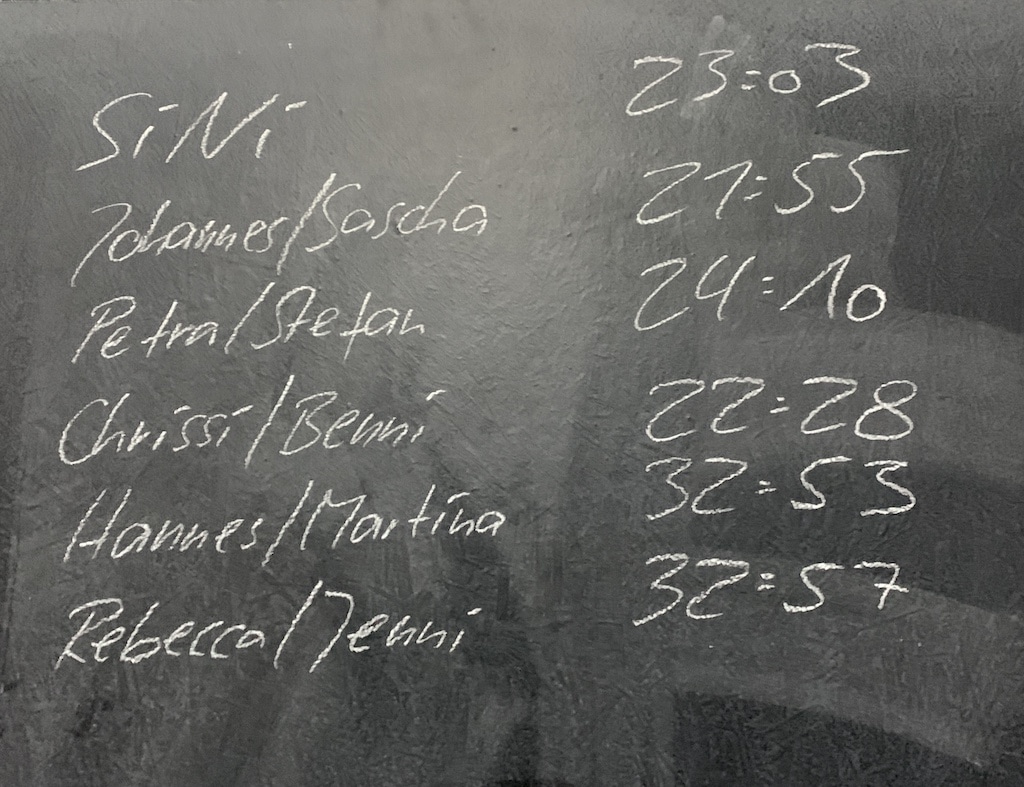 SiNi 23:03
Johannes/Sascha 21:55
Petra/Stefan 24:10
Chrissi/Benni 22:28
Hannes/Martina 32:53
Rebecca/Jenni 32:57